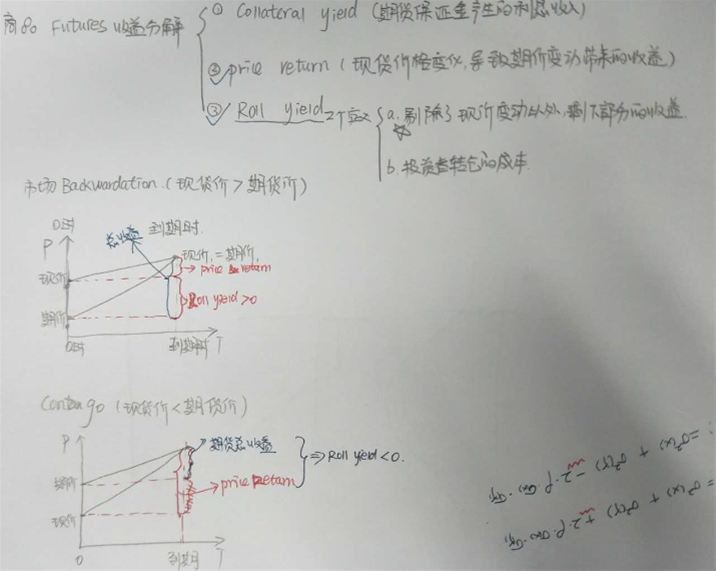 商品 Futures 收益分解
① Collateral yield (期货保证金产生的利息收入)
② price return (现货价格变化,导致期价变动带来的收益)
③ Roll yield 2个定义
a. 剔除了现价变动以外,剩下部分的收益.
b. 投资者转仓的成本
市场 Backwardation. (现货价 > 期货价)
0时
P
总收益
到期时.
现价, = 期价,
price return
现价
Roll yield>0
期价
0时
到期时 T
Contango (现货价<期货价)
P
期货总收益
⇒ Roll yield<0.
期价
price Retarn
现价
0
到期 T
= σ²(x) + σ²(y) + 2·ρ·σ(x)·σ(y)
= σ²(x) + σ²(y) - 2·ρ·σ(x)·σ(y)